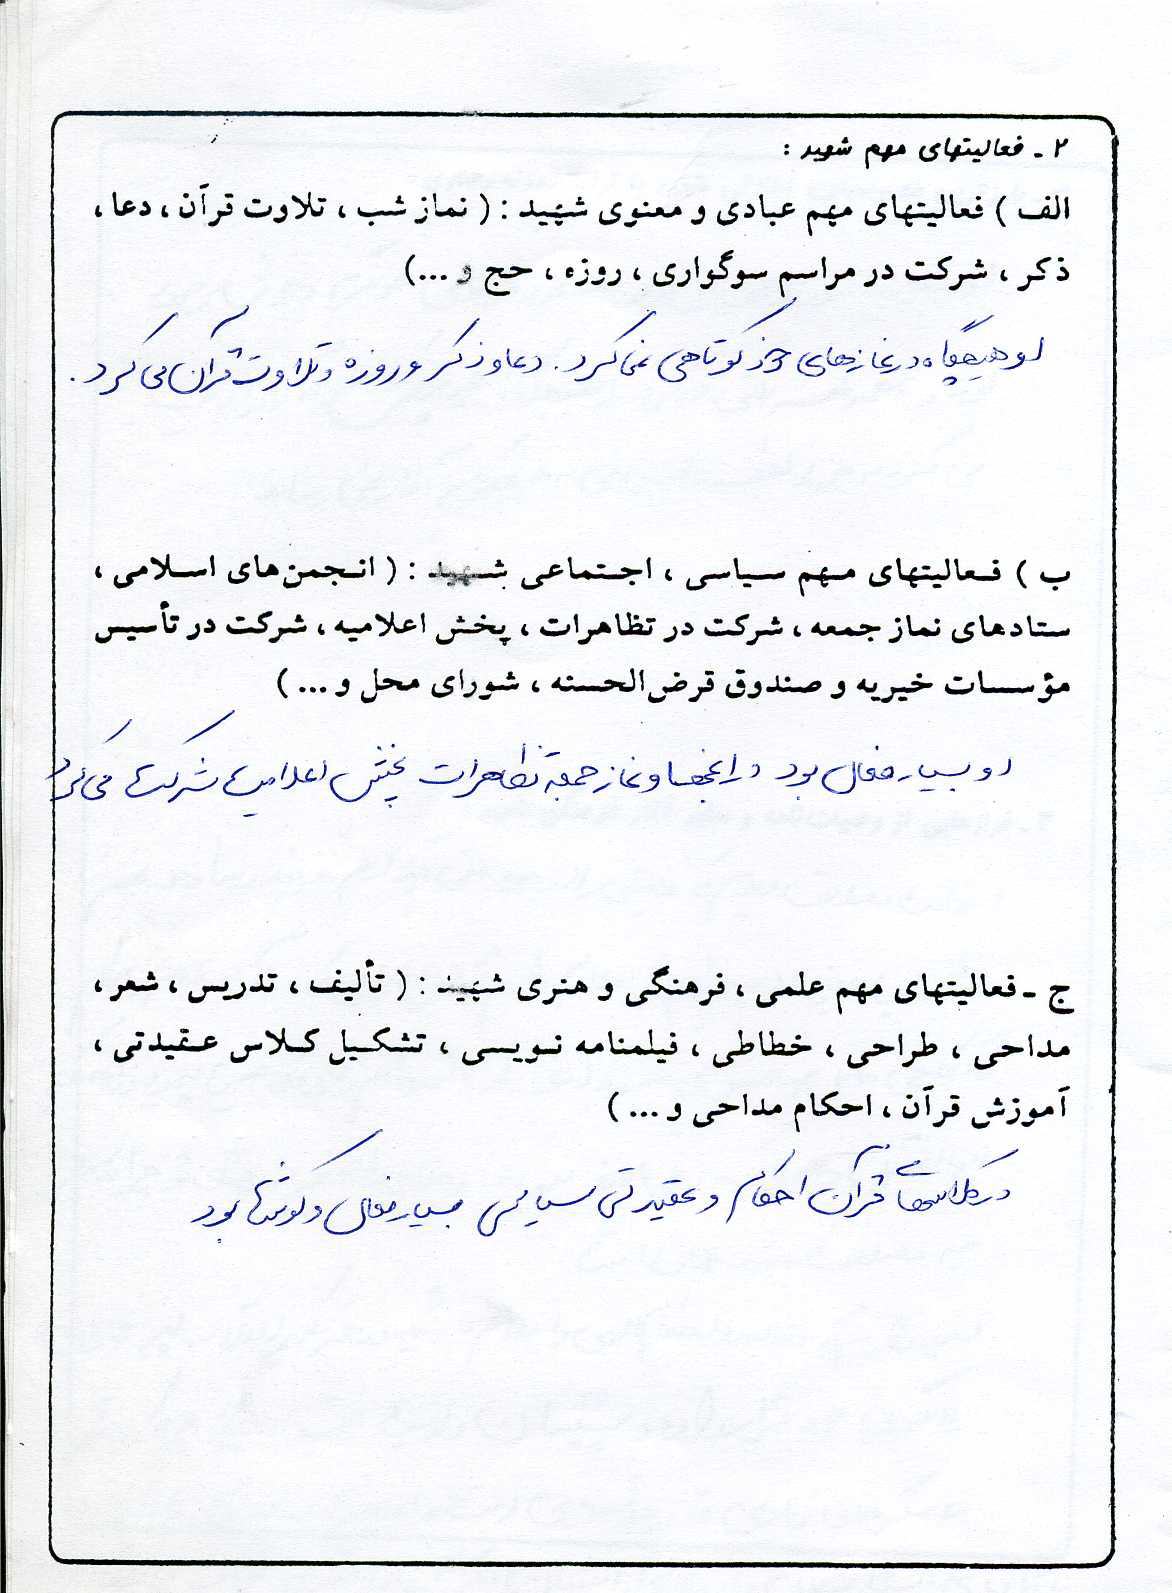 ۲ ـ فعالیتهای مهم شهید :
الف ) فعالیتهای مهم عبادی و معنوی شهید : ( نماز شب ، تلاوت قرآن ، دعا ،
ذکر ، شرکت در مراسم سوگواری ، روزه ، حج و ...)
او هیچگاه در نمازهای خود کوتاهی نمی کرد . دعا و ذکر و روزه و تلاوت قرآن می کرد .
ب ) فعالیتهای مهم سیاسی ، اجتماعی شهید : ( انجمن‌های اسلامی ،
ستادهای نماز جمعه ، شرکت در تظاهرات ، پخش اعلامیه ، شرکت در تأسیس
مؤسسات خیریه و صندوق قرض‌الحسنه ، شورای محل و ... )
او بسیار فعال بود در انجمنها و نماز جمعه تظاهرات پخش اعلامیه‌ها شرکت می کرد
ج ـ فعالیتهای مهم علمی ، فرهنگی و هنری شهید : ( تألیف ، تدریس ، شعر ،
مداحی ، طراحی ، خطاطی ، فیلمنامه نویسی ، تشکیل کلاس عقیدتی ،
آموزش قرآن ، احکام مداحی و ... )
در کلاسهای قرآن احکام و عقیدتی سیاسی بسیار فعال و کوشا بود